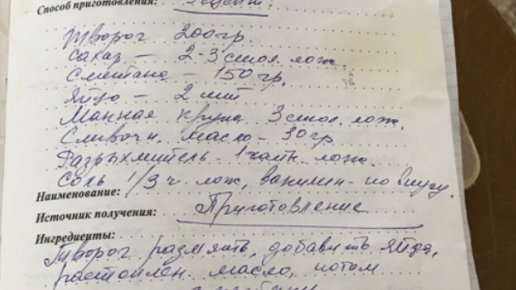 Способ приготовления: Рецепт:
Творог 200гр.
Сахар – 2-3 стол. лож.
Сметана – 150гр.
Яйцо – 2 шт
Манная крупа 3 стол. лож.
Сливочн. масло – 30гр.
Разрыхлитель 1 чайн. лож.
Соль 1/3 ч. лож, ванилин – по вкусу.
Наименование:
Источник получения: Приготовление
Ингредиенты:
Творог размять, добавить яйца,
растоплен. масло, потом